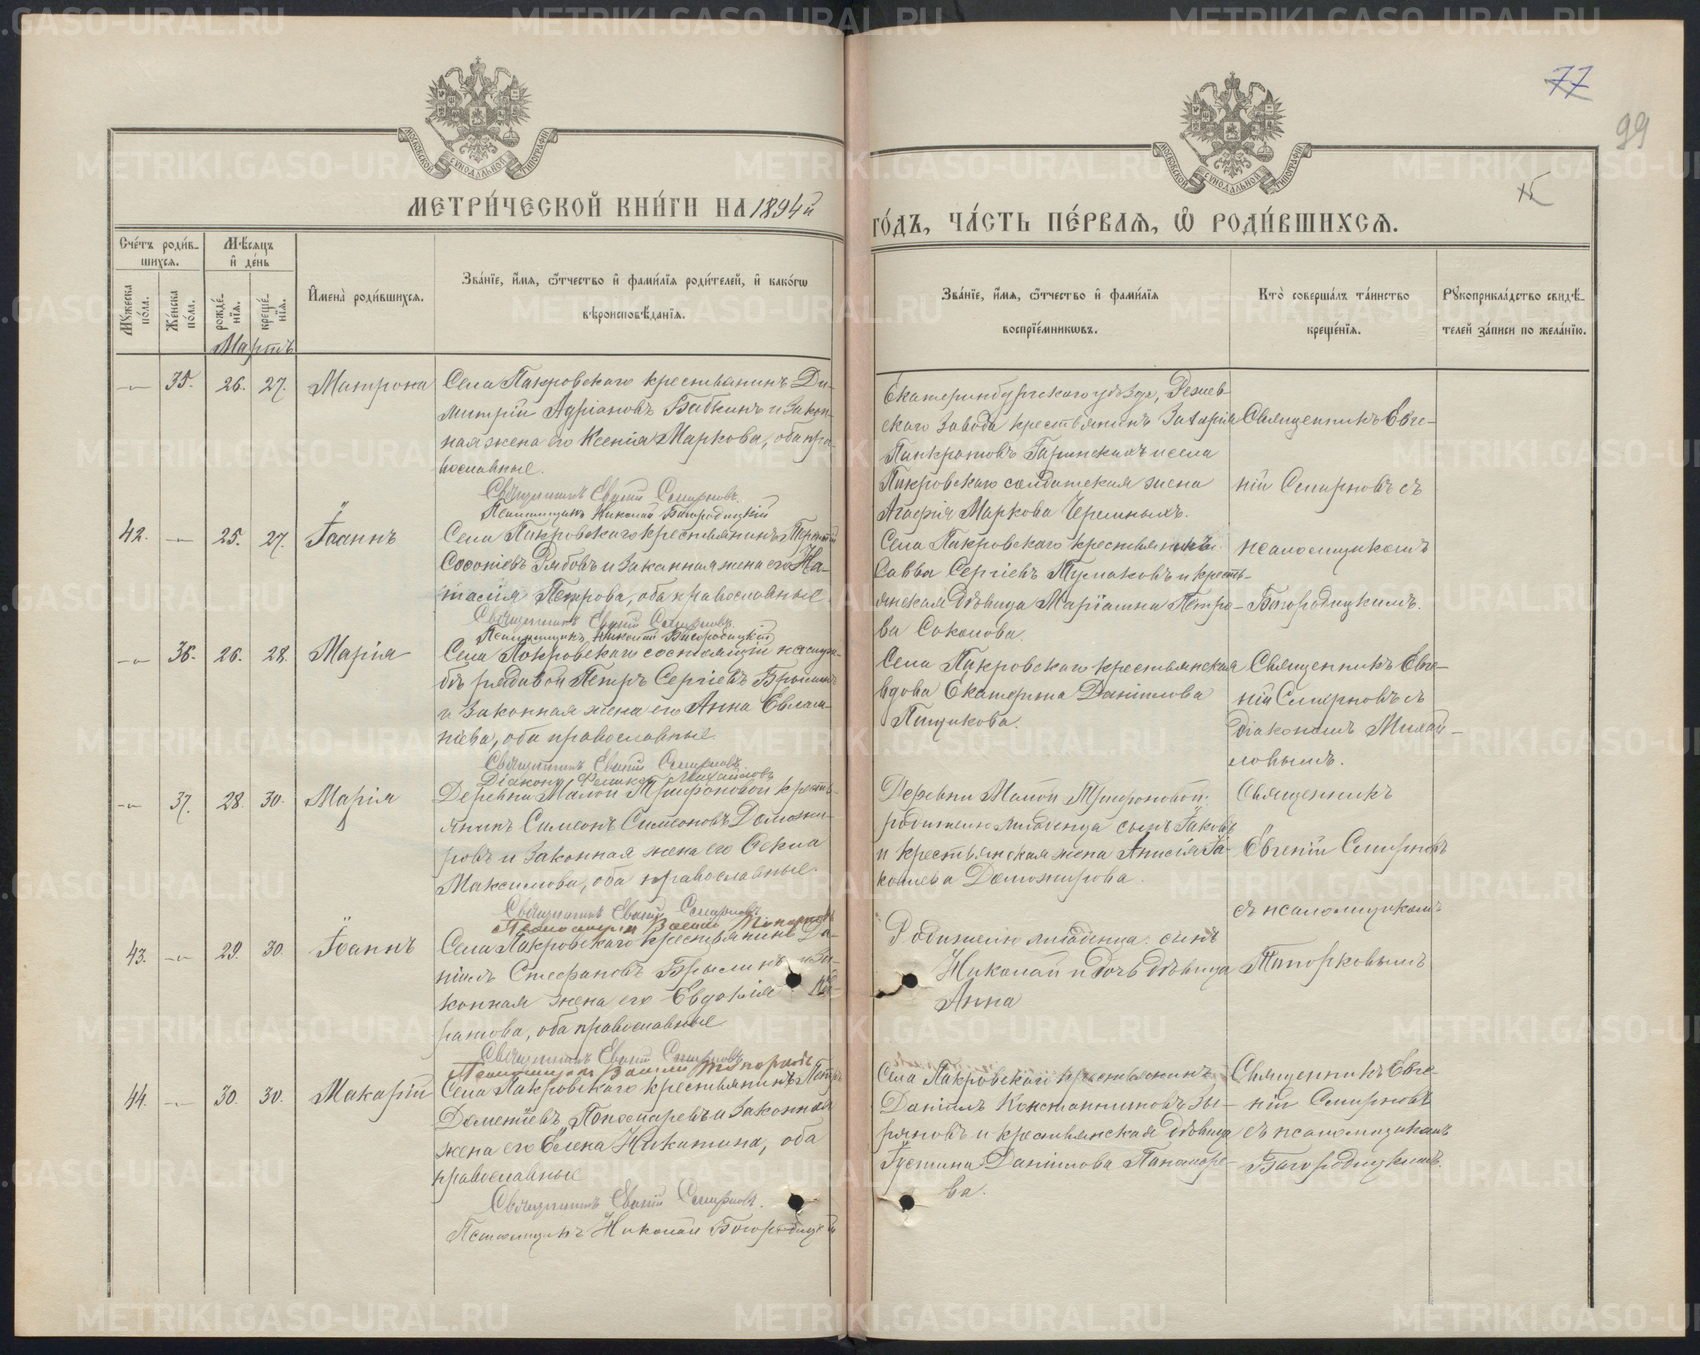 77
99
МЕТРИ́ЧЕСКОЙ КНИ́ГИ НА 1894 й
ГО́ДЪ, ЧА́СТЬ ПЕ́РВАЯ, Ѡ҆ РОДИ́ВШИХСЯ.
Сче́тъ роди́в-
шихся.
Мѣ́сяцъ
и҆ де́нь
Мꙋ́жеска по́ла.
Же́нска по́ла.
рожде́нїѧ.
креще́нїѧ.
И҆мена̀ роди́вшихся.
Зва́нїе, и҆́мя, ѻ҆́тчество и҆ фами́лїя роди́телей, и҆ како́гѡ
вѣроисповѣ́данїя.
Зва́нїе, и҆́мя, ѻ҆́тчество и҆ фами́лїя
воспрїе́мникѡвъ.
Кто̀ соверша́лъ та́инство
креще́нїя.
Рꙋкоприкла́дство свидѣ́-
телей за́писи по жела́нїю.
Мартъ
35. 26. 27. Матрона
Села Покровскаго крестьянинъ Ди-
митрій Адріановъ Бабкинъ и закон-
ная жена его Ксенія Маркова, оба пра-
вославные.
Священникъ Евгеній Смирновъ.
Псаломщикъ Николай Богородицкій
Екатеринбургскаго уѣзда, Режев-
скаго завода крестьянинъ Захарія
Панкратовъ и села
Покровскаго солдатская жена
Агафія Маркова Черемныхъ.
Священникъ Евге-
ній Смирновъ съ
псаломщикомъ
Богородицкимъ.
42. 25. 27. Іоаннъ
Села Покровскаго крестьянинъ
Софоніевъ Рябовъ и законная жена его На-
талія Петрова, оба православные
Священникъ Евгеній Смирновъ.
Псаломщикъ Николай Богородицкій
Села Покровскаго крестьянинъ
Савва Сергіевъ Тумаковъ и кресть-
янская дѣвица Маріамна Петро-
ва Соколова.
36. 26. 28. Марія
Села Покровскаго состоящій на служ-
бѣ рядовой Петръ Сергіевъ
и законная жена его Анна Евлам-
піева, оба православные.
Священникъ Евгеній Смирновъ.
Діаконъ Михайловъ
Села Покровскаго крестьянская
вдова Екатерина Даніилова
Пищикова.
Священникъ Евге-
ній Смирновъ съ
діакономъ Михай-
ловымъ.
37. 28. 30. Марія
Деревни Малой Трифоновой кресть-
янинъ Симеонъ Симеоновъ Доможи-
ровъ и законная жена его Ѳекла
Максимова, оба православные.
Священникъ Евгеній Смирновъ.
Псаломщикъ Топорковъ
Деревни Малой Трифоновой:
родителю младенца сынъ Іаковъ
и крестьянская жена Анисія Іа-
ковлева Доможирова.
Священникъ
Евгеній Смирновъ
съ псаломщикомъ
Топорковымъ
43. 29. 30. Іоаннъ
Села Покровскаго крестьянинъ Да-
ніилъ Стефановъ Брылинъ и за-
конная жена его Евдокія
ратова, оба православные
Священникъ Евгеній Смирновъ
Псаломщикъ Топорковъ
Родителю младенца: сынъ
Николай и дочь дѣвица
Анна
44. 30. 30. Макарій
Села Покровскаго крестьянинъ Петръ
Дометіевъ Пономаревъ и законная
жена его Елена Никитина, оба
православные
Священникъ Евгеній Смирновъ.
Псаломщикъ Николай Богородицкій
Села Покровскаго крестьянинъ
Даніилъ Константиновъ Зы-
ряновъ и крестьянская дѣвица
Іустина Даніилова Пономаре-
ва.
Священникъ Евге-
ній Смирновъ
съ псаломщикомъ
Богородицкимъ.
METRIKI.GASO-URAL.RU